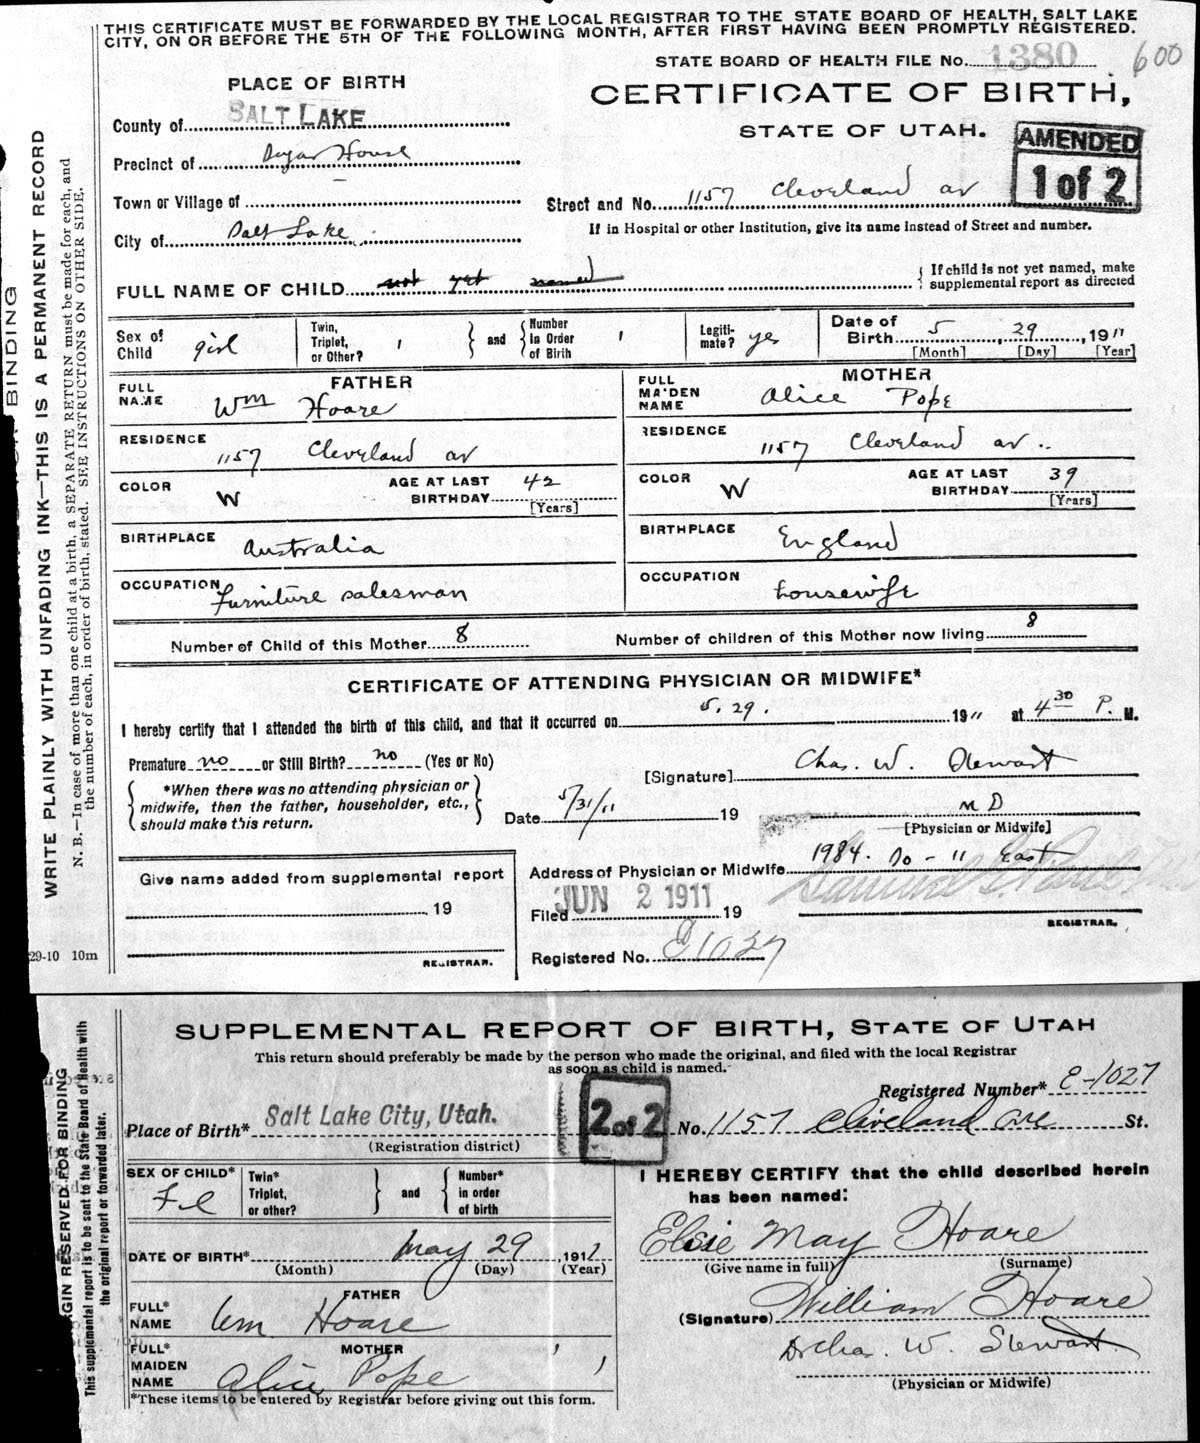 THIS CERTIFICATE MUST BE FORWARDED BY THE LOCAL REGISTRAR TO THE STATE BOARD OF HEALTH, SALT LAKE
CITY, ON OR BEFORE THE 5TH OF THE FOLLOWING MONTH, AFTER FIRST HAVING BEEN PROMPTLY REGISTERED.
STATE BOARD OF HEALTH FILE No. 1380 600
PLACE OF BIRTH
CERTIFICATE OF BIRTH,
STATE OF UTAH.
AMENDED
1 of 2
County of SALT LAKE
Precinct of Sugar House
Town or Village of
Street and No. 1157 Cleveland av
City of Salt Lake
If in Hospital or other Institution, give its name instead of Street and number.
FULL NAME OF CHILD not yet named
{ If child is not yet named, make
supplemental report as directed
Sex of Child girl
Twin, Triplet, or Other? 1 } and { Number in Order of Birth 1
Legiti-mate? yes
Date of Birth 5, 29, 1911
[Month] [Day] [Year]
FATHER
FULL NAME Wm Hoare
RESIDENCE 1157 Cleveland av
COLOR W
AGE AT LAST BIRTHDAY 42
[Years]
BIRTHPLACE Australia
OCCUPATION Furniture salesman
MOTHER
FULL MAIDEN NAME Alice Pope
RESIDENCE 1157 Cleveland av..
COLOR W
AGE AT LAST BIRTHDAY 39
[Years]
BIRTHPLACE England
OCCUPATION housewife
Number of Child of this Mother 8 Number of children of this Mother now living 8
CERTIFICATE OF ATTENDING PHYSICIAN OR MIDWIFE*
I hereby certify that I attended the birth of this child, and that it occurred on 5. 29. 1911 at 4 30 P. M.
Premature no or Still Birth? no (Yes or No)
[Signature] Chas. W. Stewart
{ *When there was no attending physician or
midwife, then the father, householder, etc.,
should make this return. }
Date 5/31/11 19
M D
[Physician or Midwife]
Address of Physician or Midwife 1984. So - 11 East
Give name added from supplemental report
19
REGISTRAR.
Filed JUN 2 1911 19
REGISTRAR.
Registered No. 1027
29-10 10m
WRITE PLAINLY WITH UNFADING INK—THIS IS A PERMANENT RECORD
N. B.—In case of more than one child at a birth, a SEPARATE RETURN must be made for each, and
the number of each, in order of birth, stated. SEE INSTRUCTIONS ON OTHER SIDE.
BINDING
SUPPLEMENTAL REPORT OF BIRTH, STATE OF UTAH
This return should preferably be made by the person who made the original, and filed with the local Registrar
as soon as child is named.
Registered Number* E-1027
Place of Birth* Salt Lake City, Utah.
(Registration district)
2 of 2
No. 1157 Cleveland Ave St.
SEX OF CHILD* Fe
Twin* Triplet, or other? } and { Number* in order of birth
DATE OF BIRTH* May 29 1911
(Month) (Day) (Year)
FATHER
FULL* NAME Wm Hoare
MOTHER
FULL* MAIDEN NAME Alice Pope
*These items to be entered by Registrar before giving out this form.
I HEREBY CERTIFY that the child described herein
has been named:
Elsie May Hoare
(Give name in full) (Surname)
(Signature) William Hoare
Dr Chas. W. Stewart
(Physician or Midwife)
GIN RESERVED FOR BINDING
This supplemental report is to be sent to the State Board of Health with
the original report or forwarded later.